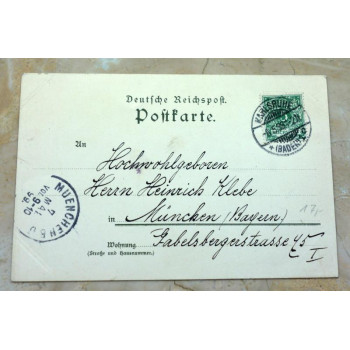 Deutsche Reichspost.
Postkarte.
KARLSRUHE
(BADEN)
An
Hochwohlgeboren
Herrn Heinrich Klebe
in München (Bayern)
Gabelsbergerstrasse 45
I
Wohnung
(Straße und Hausnummer)
MUENCHEN
17,-